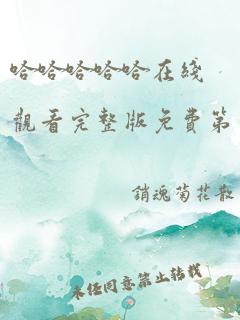 哈哈哈哈哈在綫
觀看完整版免費第
銷魂菊花散
未任同意禁止转载